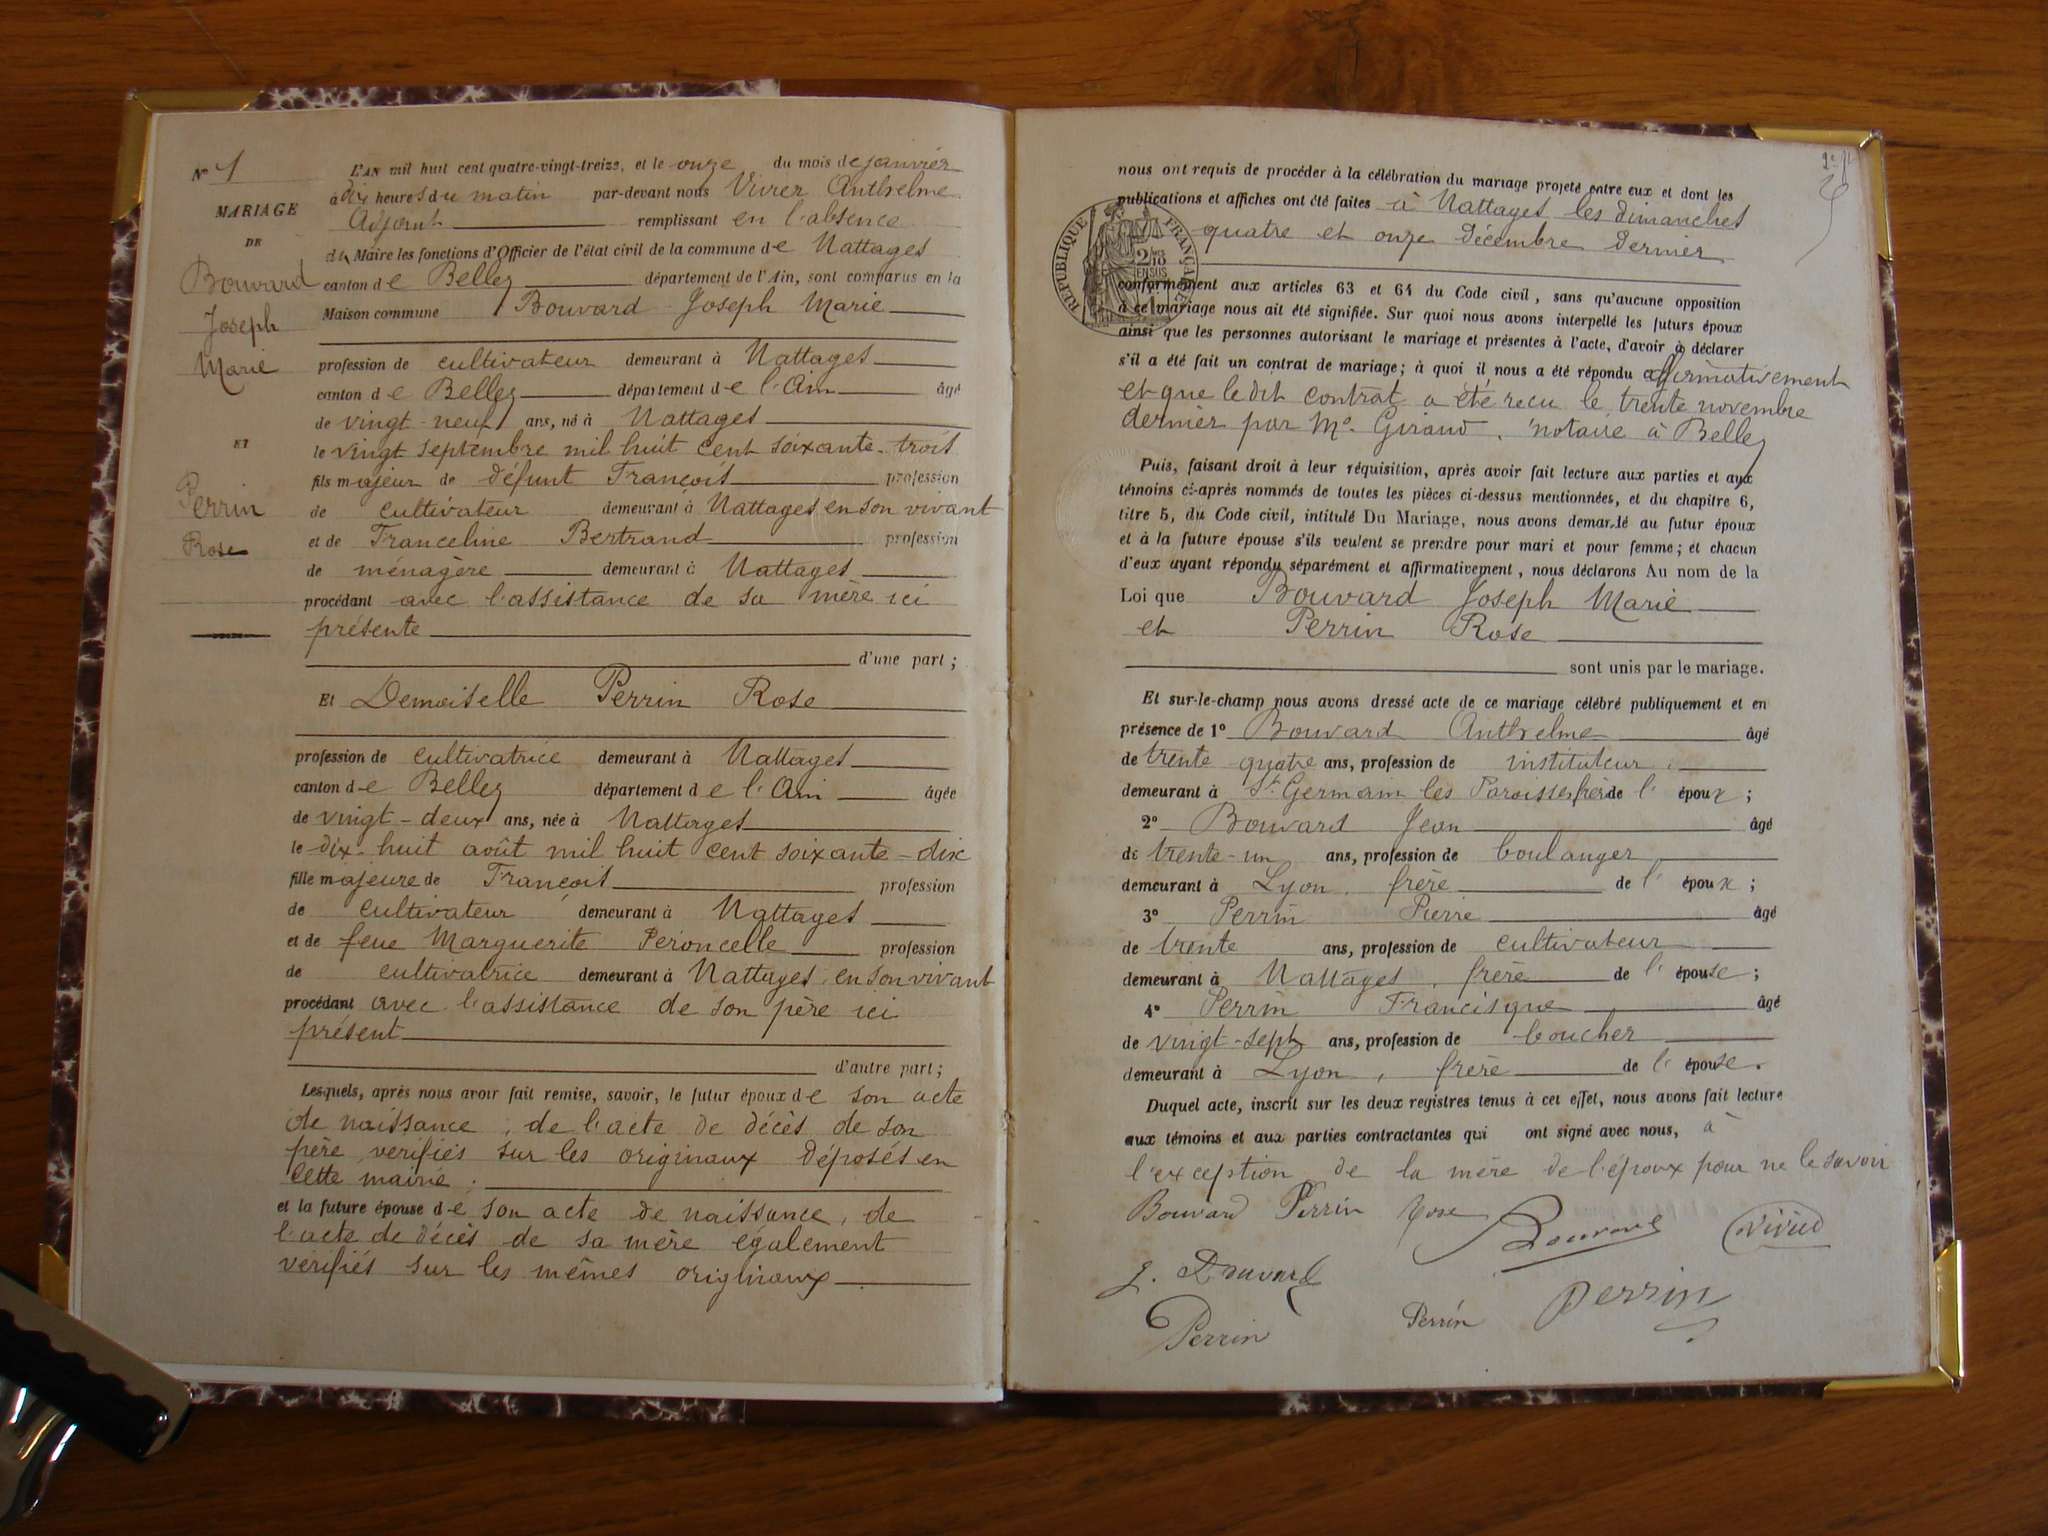 N° 1
MARIAGE
DE
Bouvard
Joseph
Marie
ET
Perrin
Rose
L'AN mil huit cent quatre-vingt-treize, et le onze du mois de janvier
à dix heures du matin par-devant nous Vivier Anthelme
Adjoint remplissant en l'absence
du Maire les fonctions d'Officier de l'état civil de la commune de Nattages
canton de Belley département de l'Ain, sont comparus en la
Maison commune Bouvard Joseph Marie
profession de cultivateur demeurant à Nattages
canton de Belley département de l'Ain âgé
de vingt-neuf ans, né à Nattages
le vingt septembre mil huit cent soixante-trois
fils majeur de défunt François profession
de cultivateur demeurant à Nattages en son vivant
et de Franceline Bertrand profession
de ménagère demeurant à Nattages
procédant avec l'assistance de sa mère ici
présente
d'une part ;
Et Demoiselle Perrin Rose
profession de cultivatrice demeurant à Nattages
canton de Belley département de l'Ain âgée
de vingt-deux ans, née à Nattages
le dix-huit août mil huit cent soixante-dix
fille majeure de François profession
de cultivateur demeurant à Nattages
et de feue Marguerite Peroncelle profession
de cultivatrice demeurant à Nattages en son vivant
procédant avec l'assistance de son père ici
présent
d'autre part ;
Lesquels, après nous avoir fait remise, savoir, le futur époux de son acte
de naissance, de l'acte de décès de son
père vérifiés sur les originaux déposés en
cette mairie ;
et la future épouse de son acte de naissance, de
l'acte de décès de sa mère également
vérifiés sur les mêmes originaux
nous ont requis de procéder à la célébration du mariage projeté entre eux et dont les
publications et affiches ont été faites à Nattages les dimanches
quatre et onze Décembre Dernier
RÉPUBLIQUE FRANÇAISE
conformément aux articles 63 et 64 du Code civil, sans qu'aucune opposition
à ce mariage nous ait été signifiée. Sur quoi nous avons interpellé les futurs époux
ainsi que les personnes autorisant le mariage et présentes à l'acte, d'avoir à déclarer
s'il a été fait un contrat de mariage ; à quoi il nous a été répondu affirmativement
et que le dit contrat a été reçu le trente novembre
dernier par Me. Giraud, notaire à Belley
Puis, faisant droit à leur réquisition, après avoir fait lecture aux parties et aux
témoins ci-après nommés de toutes les pièces ci-dessus mentionnées, et du chapitre 6,
titre 5, du Code civil, intitulé Du Mariage, nous avons demandé au futur époux
et à la future épouse s'ils veulent se prendre pour mari et pour femme ; et chacun
d'eux ayant répondu séparément et affirmativement, nous déclarons Au nom de la
Loi que Bouvard Joseph Marie
et Perrin Rose
sont unis par le mariage.
Et sur-le-champ nous avons dressé acte de ce mariage célébré publiquement et en
présence de 1° Bouvard Anthelme âgé
de trente quatre ans, profession de instituteur
demeurant à St. Germain les Paroisses frère de l' époux ;
2° Bouvard Jean âgé
de trente-un ans, profession de boulanger
demeurant à Lyon, frère de l' époux ;
3° Perrin Pierre âgé
de trente ans, profession de cultivateur
demeurant à Nattages, frère de l' épouse ;
4° Perrin Francisque âgé
de vingt-sept ans, profession de boucher
demeurant à Lyon, frère de l' épouse.
Duquel acte, inscrit sur les deux registres tenus à cet effet, nous avons fait lecture
aux témoins et aux parties contractantes qui ont signé avec nous, à
l'exception de la mère de l'époux pour ne le savoir
Bouvard Perrin Rose Bouvard Vivier
J. Bouvard Perrin
Perrin Perrin